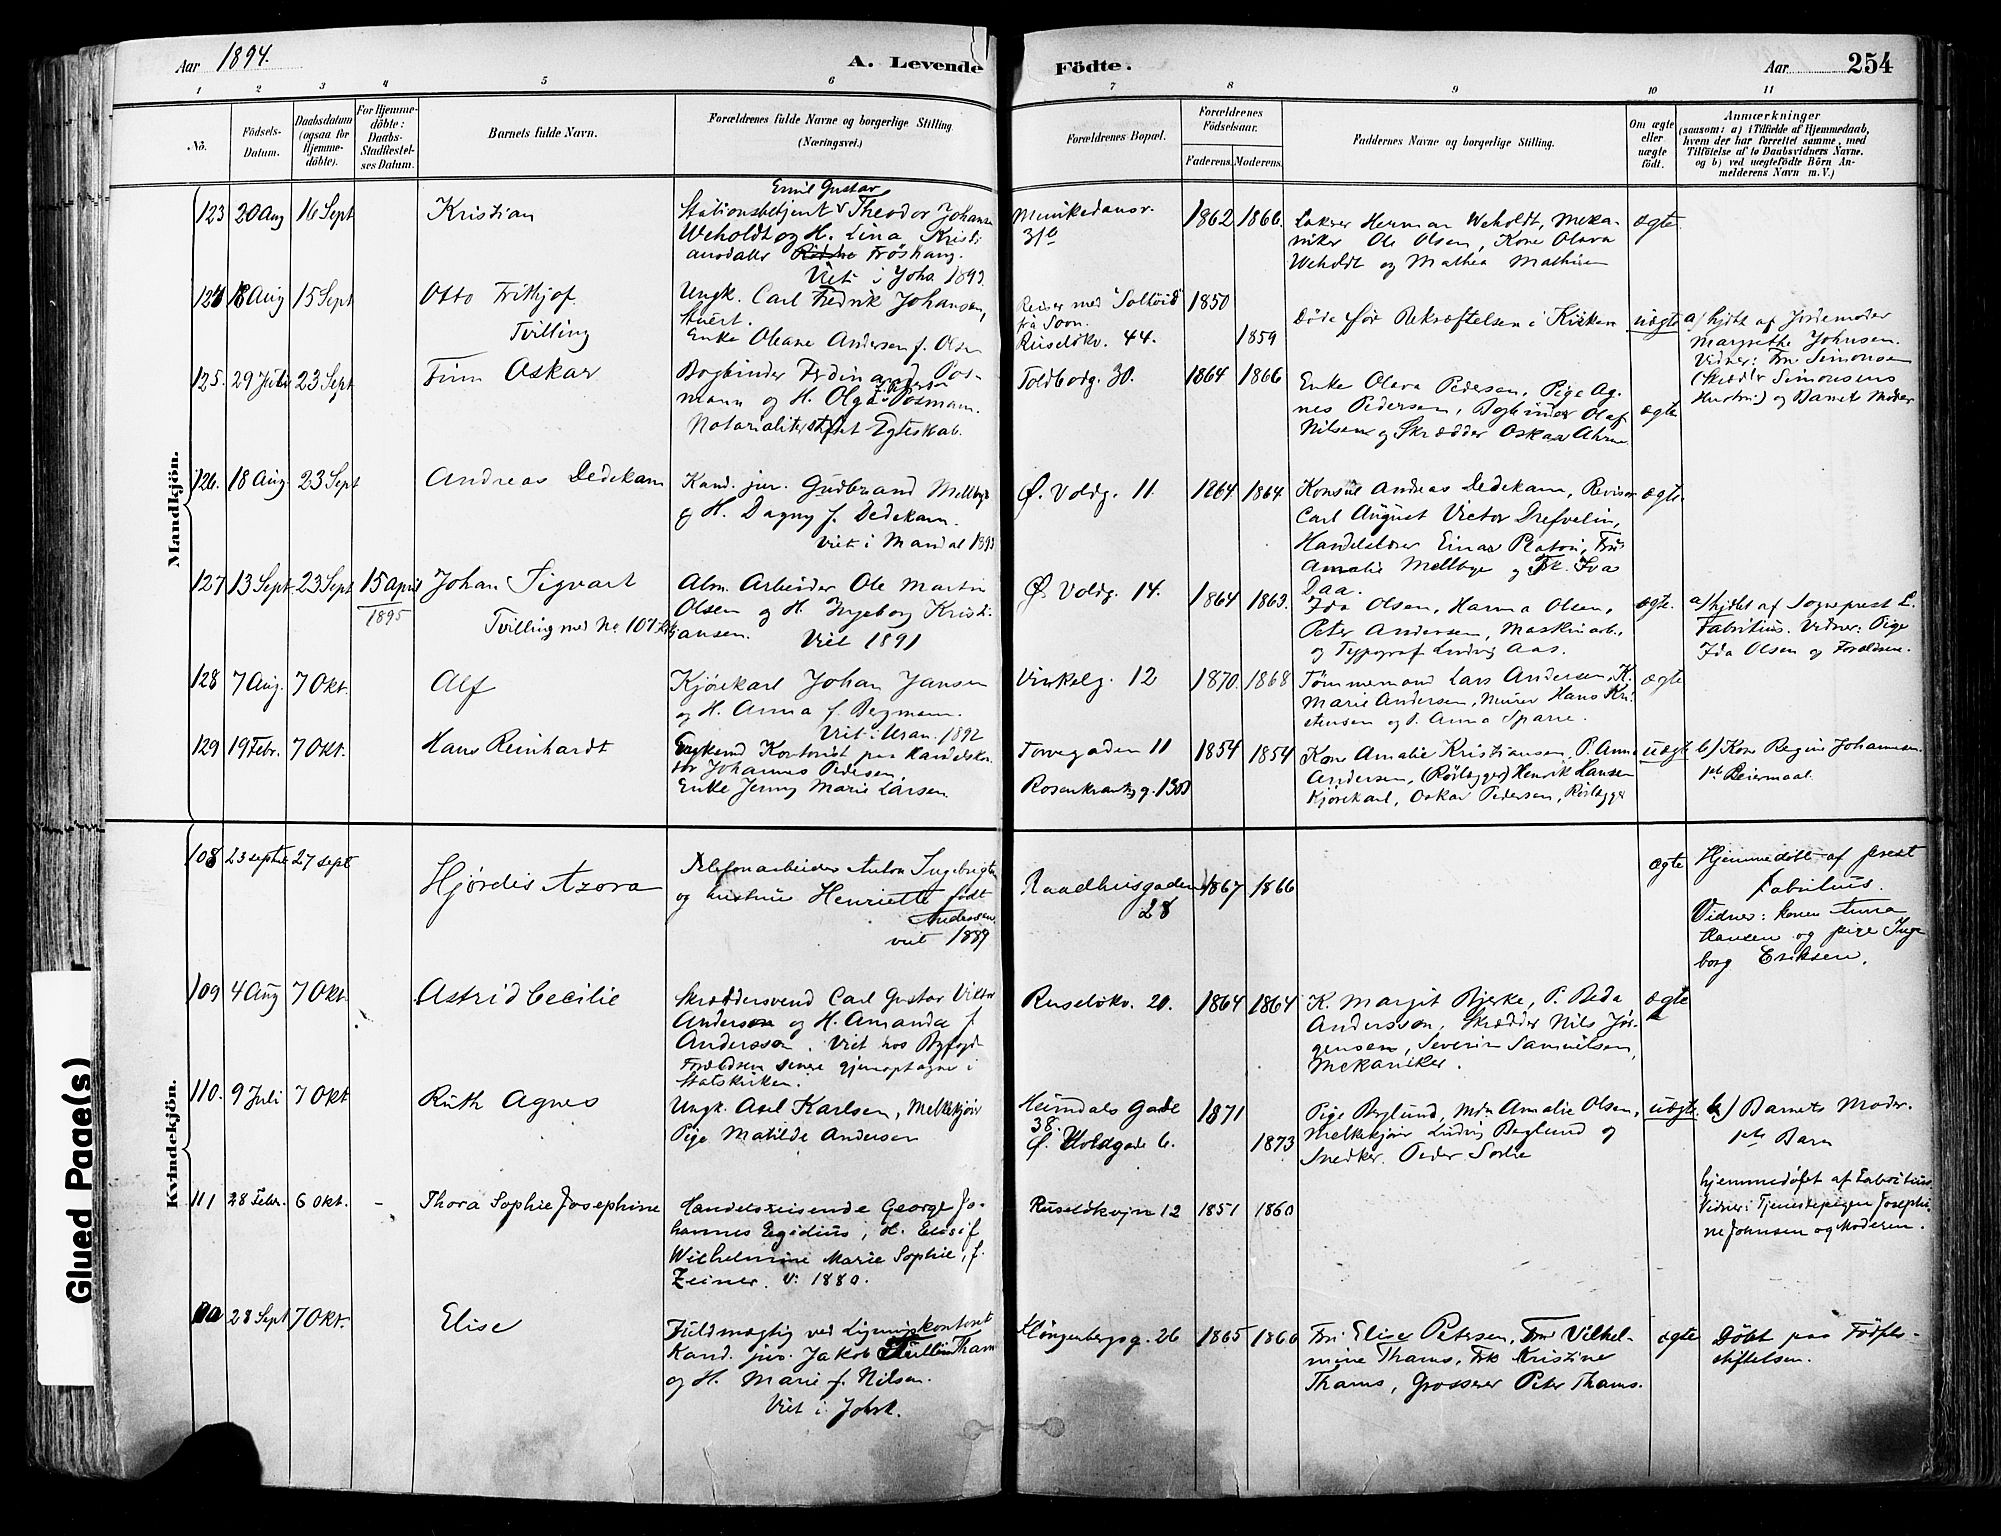 Aar 1894.
A. Levende Födte.
Aar 254
1 2 3 4 5 6 7 8 9 10 11
No.
Födsels-Datum.
Daabsdatum (ogsaa for Hjemmedöbte).
For Hjemmedöbte: Daabs-Stadfæstelses Datum.
Barnets fulde Navn.
Forældrenes fulde Navne og borgerlige Stilling (Næringsvei.)
Forældrenes Bopæl.
Forældrenes Födselsaar.
Faderens. Moderens.
Faddernes Navne og borgerlige Stilling.
Om ægte eller uægte födt.
Anmærkninger
(saasom: a) i Tilfælde af Hjemmedaab,
hvem der har forrettet samme, med
Tilföielse af to Daabsvidners Navne.
og b) ved uægtefödte Börn An-
melderens Navn m. V.)
Mandkjön.
123 20 Aug 16 Sept
Kristian
Emil Gustav
Stationsbetjent Theodor Johansen
Weholdt og H. Lina Kristi
ansdatter Fröshaug.
Viet i Joha. 1893
Munkedamsv.
31b
1862 1866.
Lakerer Herman Weholdt, Meka-
niker Ole Olsen, Kone Olava
Weholdt og Mathea Mathisen
ægte
124 18 Aug 15 Sept
Otto Frithjof
Tvilling
Ungk. Carl Fredrik Johansen,
Stuert.
Enke Oleane Andersen f. Olsen
Reiser med
fra Soon.
Ruselökv. 44.
1850
1859
Döde för Bekræftelsen i Kirken
uægte
a) hjdbt af Jordemoder
Margrethe Johnsen.
Vidner: Fru Simonsen
(Skrædder Simonsens
Hustru) og Barnets Moder
125. 29 Juli 23 Sept
Finn Oskar
Bogbinder Ferdinand Pos-
mann og H. Olga Posmann.
Notarialiter stiftet Egteskab.
Toldbodg. 30.
1864 1866
Enke Olava Pedersen, Pige Ag-
nes Pedersen, Bogbinder Olaf
Nilsen og Skrædder Oskar
ægte
126. 18 Aug. 23 Sept
Andreas Dedekam
Kand. jur. Gudbrand Mellbye
og H. Dagny f. Dedekam.
Viet i Mandal 1893
Ø. Voldg. 11.
1864 1864
Konsul Andreas Dedekam, Revisor
Carl August Victor Drefvelin,
Handelslærer Einar Platou, Fru
Amalie Mellbye og Frk. Eva
Daa.
ægte.
127 13 Sept. 23 Sept 15 April
1895
Johan Sigvart
Tvilling med No 107
Alm. Arbeider Ole Martin
Olsen og H. Ingeborg Kristi-
ansen. Viet 1891
Ø. Voldg. 14.
1864 1863.
Ida Olsen, Hanna Olsen,
Peter Andersen, Maskinarb.,
og Typograf Ludvig Aas.
ægte.
a) hjdbt af Sogneprest L.
Fabritius. Vidner: Pige
Ida Olsen og Forældrene.
128 7 Aug. 7 Okt.
Alf
Kjørekarl Johan Jansen
og H. Anna f. Bergmann.
Viet i Uran. 1892
Vinkelg. 12
1870. 1868
Tømmermand Lars Andersen, K.
Marie Andersen, Murer Hans Kri-
stensen og P. Anna Sparre.
ægte
129 19 Febr. 7 Okt.
Hans Reinhardt
Enkemd Kontorist paa Handelskon-
tor Johannes Pedersen,
Enke Jenny Marie Larsen.
Torvegaden 11
Rosenkrantzg. 13
1854 1854
Kone Amalie Kristiansen, P. Anna
Andersen, (Rörlægger) Henrik Hansen
Kjørekarl, Oskar Pedersen, Rörlægger
uægte
b) Kone Regine Johannesen
1ste Leiermaal.
Kvindekjön.
108 23 septbr 27 sept
Hjördis Azora
Telefonarbeider Anton Ingebrigtsen
og hustru Henriette født
Andersen
viet 1889
Raadhusgaden
28
1867 1866
ægte
Hjemmedöbt af prest
Fabritius.
Vidner: konen Anna
Hansen og pige Inge
borg Eriksen.
109 4 Aug 7 Okt.
Astrid Cecilie
Skræddersvend Carl Gustav Viktor
Anderson og H. Amanda f.
Andersson. Viet hos Byfogd.
Forældrene senere gjenoptagne i
Statskirken.
Ruselökv. 20.
1864 1864
K. Margit Bjerke, P. Beda
Andersson, Skrædder Nils Jör-
gensen, Severin Samuelsen,
Mekaniker.
ægte
110. 9 Juli 7 Okt
Ruth Agnes
Ungk. Axel Karlsen, Melkekjörer
Pige Matilde Andersen
Heimdals Gade
38.
Ø. Voldgade 6.
1871
1873
Pige Berglund, Mdm Amalie Olsen,
Melkekjörer Ludvig Berglund og
Snedker Peder Sörlie
uægte.
b) Barnets Moder.
1ste Barn
111 28 Febr. 6 Okt. -
Thora Sophie Josephine
Handelsreisende George Jo-
hannes Egidius, H. Elise
Wilhelmine Marie Sophie, f.
Zeiner. V. 1880.
Ruselökvejen 12
1851 1860
hjemmedøbt af Fabritius.
Vidner: Tjenestepigen Josephi-
ne Johnsen og Moderen.
112 28 Sept 7 Okt.
Elise
Fuldmægtig ved Ligningskontoret
Kand. jur. Jakob Tullin Thams
og H. Marie f. Nilsen.
Viet i Johsk.
Klingenbergsg. 26
1865 1866
Fru Elise Petersen, Fru Vilhel-
mine Thams, Frk Kristine
Thams, Grosserer Peter Thams.
ægte
Döbt paa Födsels-
stiftelsen.
Glued Page(s)